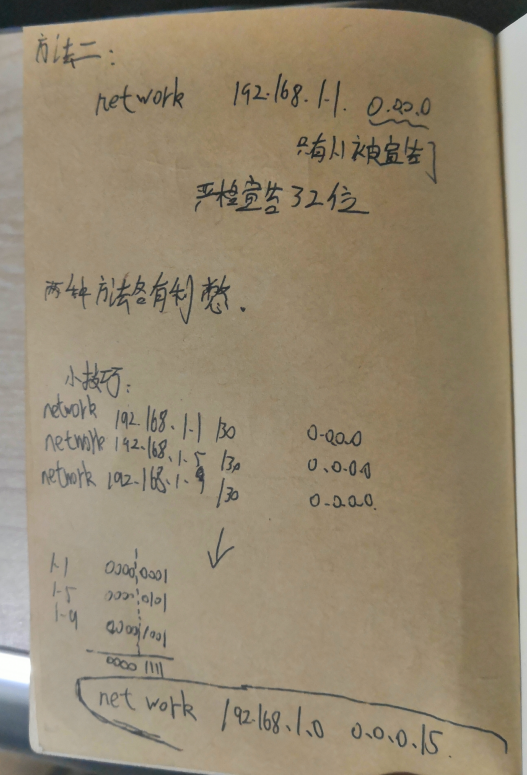 方法二:
network 192.168.1.1. 0.0.0.0
只有1.1被宣告了
严格宣告32位
两种方法各有利弊.
小技巧:
network 192.168.1.1 /30 0.0.0.0
network 192.168.1.5 /30 0.0.0.0
network 192.168.1.9 /30 0.0.0.0.
↓
1.1 0000 0001
1.5 0000 0101
1.9 0000 1001
0000 1111
network 192.168.1.0 0.0.0.15.